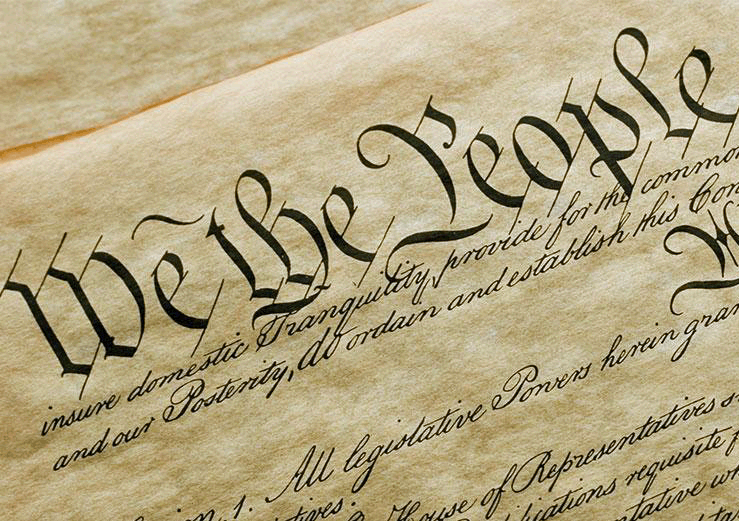 We the People
insure domestic Tranquility, provide for the common
and our Posterity, do ordain and establish this Con
1. All legislative Powers herein gran
House of Representatives s
tives.
ications requisite f
tative wh